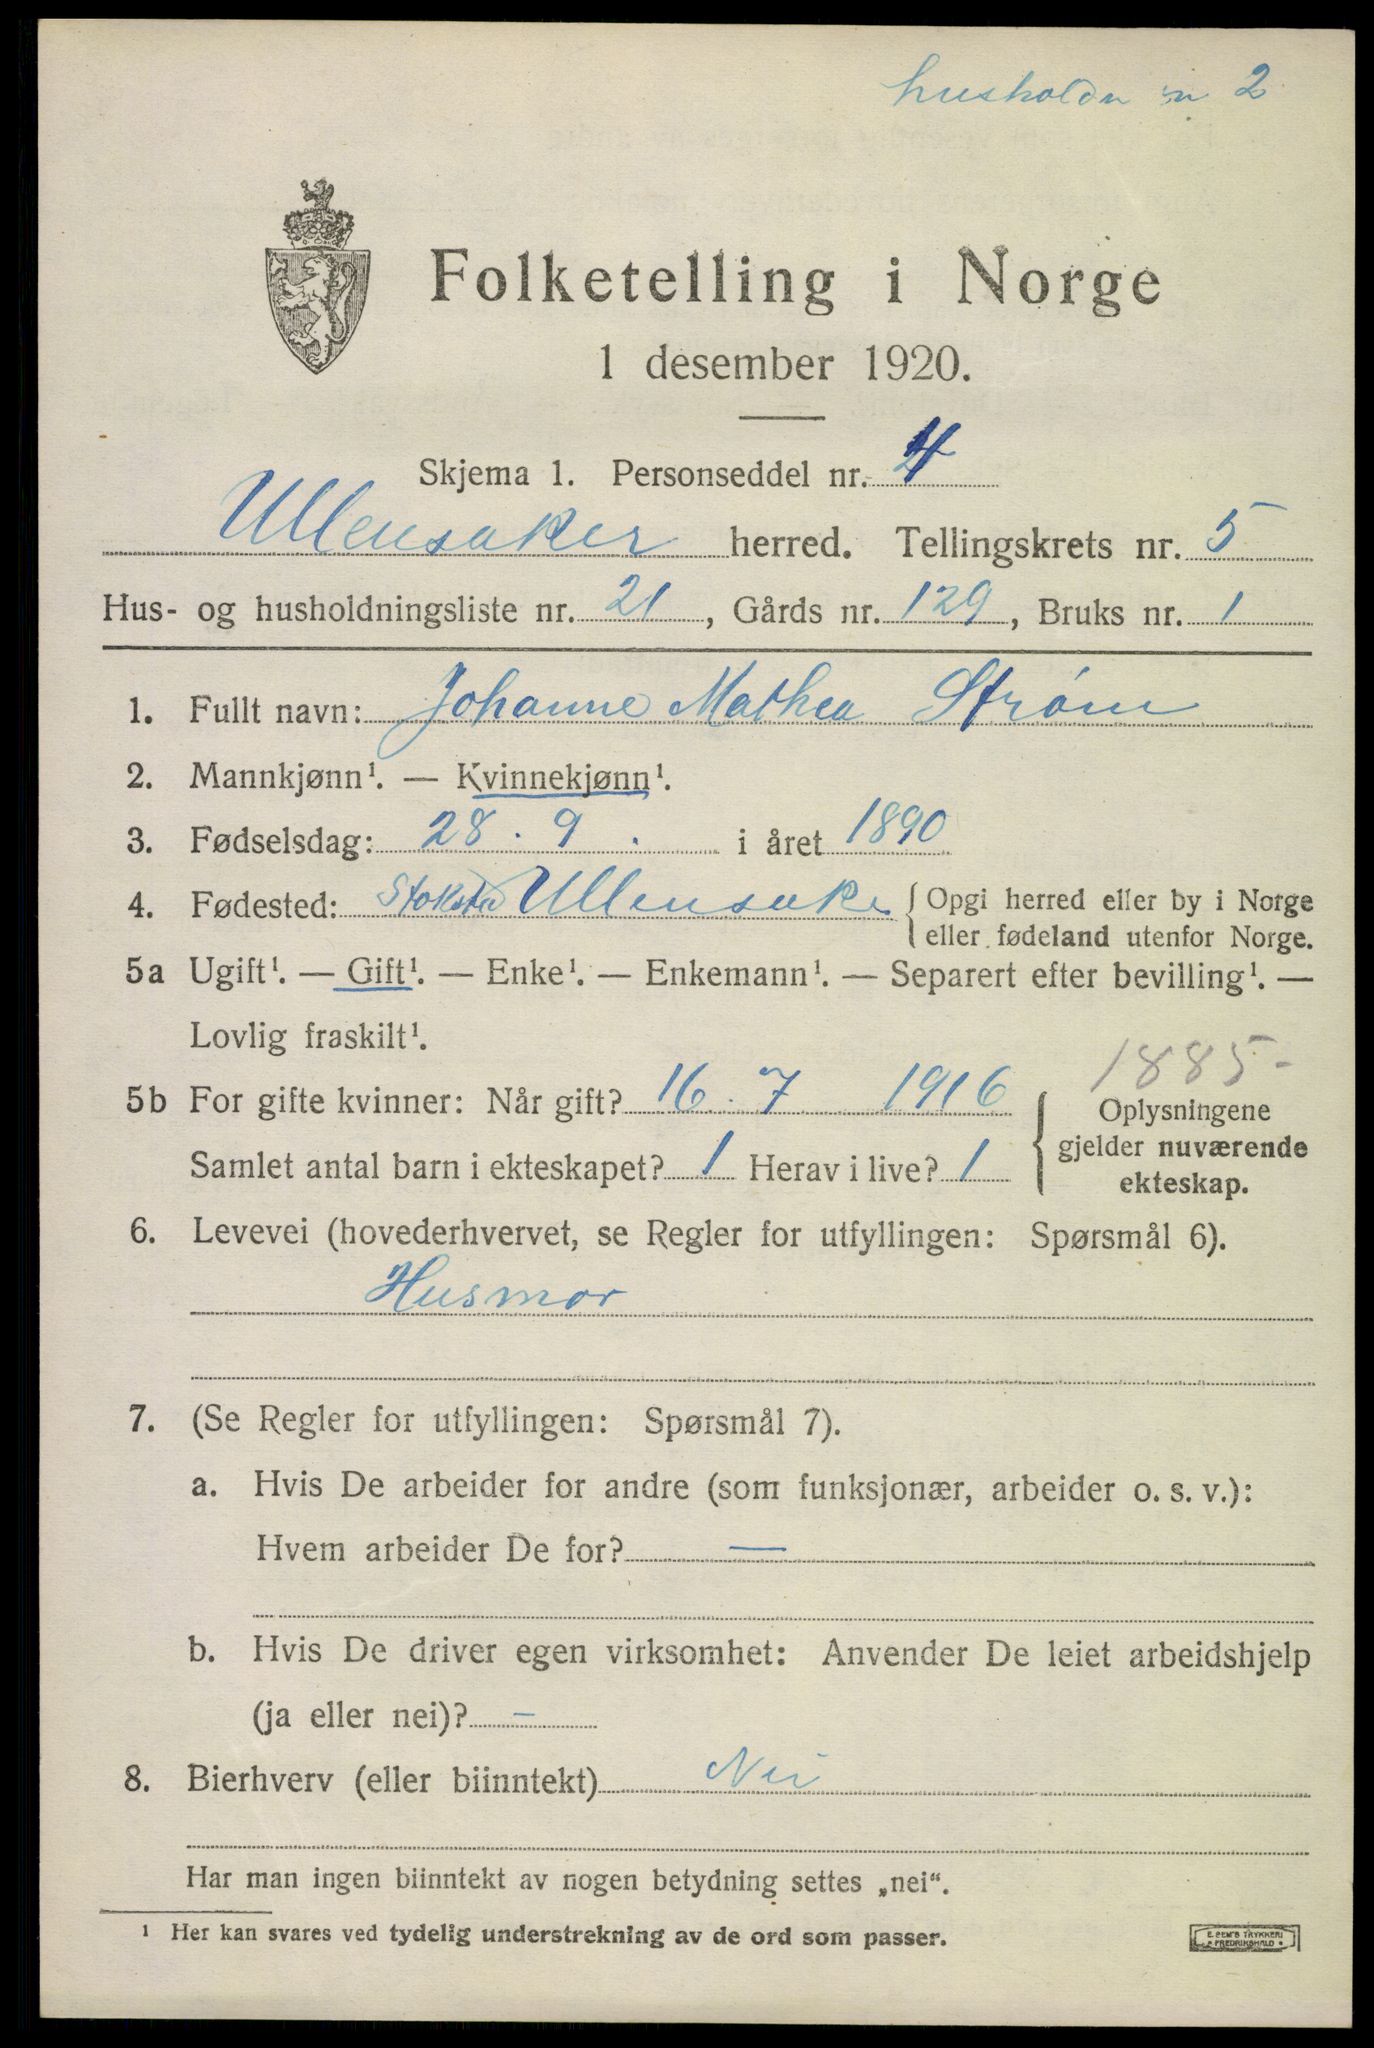 husholdn nr 2
Folketelling i Norge
1 desember 1920.
Skjema 1. Personseddel nr. 4
Ullensaker herred. Tellingskrets nr. 5
Hus- og husholdningsliste nr. 21, Gårds nr. 129, Bruks nr. 1
1. Fullt navn: Johanne Mathea Strøm
2. Mannkjønn¹. — Kvinnekjønn¹.
3. Fødselsdag: 28. 9. i året 1890
4. Fødested: Ullensaker { Opgi herred eller by i Norge
eller fødeland utenfor Norge.
5a Ugift¹. — Gift¹. — Enke¹. — Enkemann¹. — Separert efter bevilling¹. —
Lovlig fraskilt¹.
1885-
5b For gifte kvinner: Når gift? 16. 7 1916
Samlet antal barn i ekteskapet? 1 Herav i live? 1
Oplysningene
gjelder nuværende
ekteskap.
6. Levevei (hovederhvervet, se Regler for utfyllingen: Spørsmål 6).
Husmor
7. (Se Regler for utfyllingen: Spørsmål 7).
a. Hvis De arbeider for andre (som funksjonær, arbeider o. s. v.):
Hvem arbeider De for? —
b. Hvis De driver egen virksomhet: Anvender De leiet arbeidshjelp
(ja eller nei)? –
8. Bierhverv (eller biinntekt) Nei
Har man ingen biinntekt av nogen betydning settes „nei“.
¹ Her kan svares ved tydelig understrekning av de ord som passer.
E. SEM'S TRYKKERI
FREDRIKSHALD